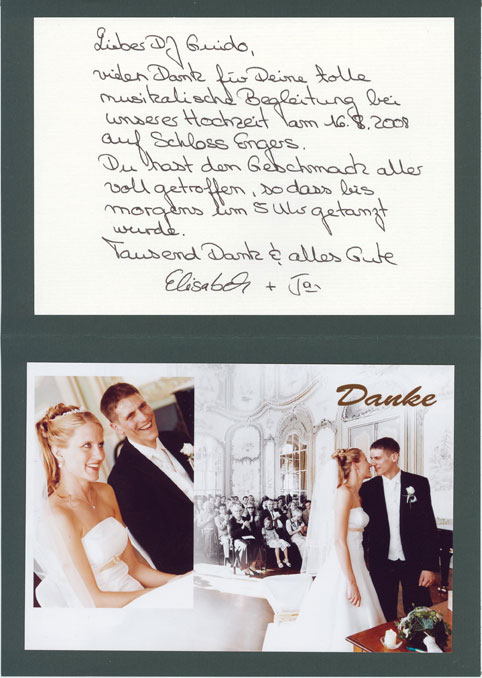 Lieber DJ Guido,
vielen Dank für Deine tolle
musikalische Begleitung bei
unserer Hochzeit am 16.8.2008
auf Schloss Engers.
Du hast den Geschmack aller
voll getroffen, so dass bis
morgens um 5 Uhr getanzt
wurde.
Tausend Dank & alles Gute
Elisabeth + Jan
Danke